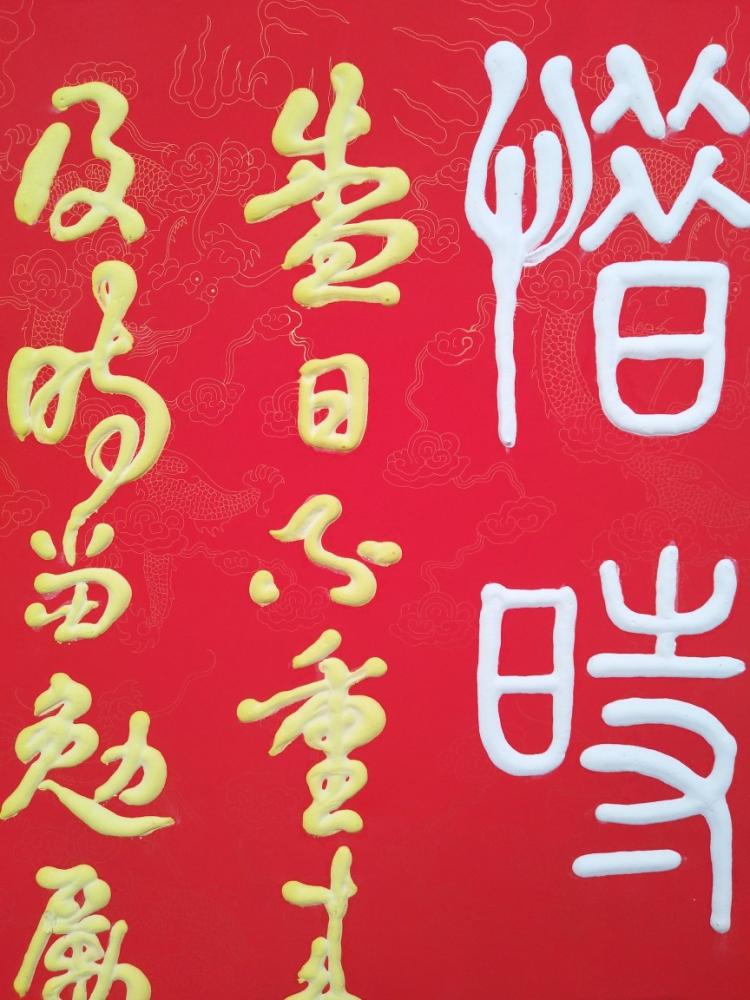 惜時
盛日不重来
及時當勉勵